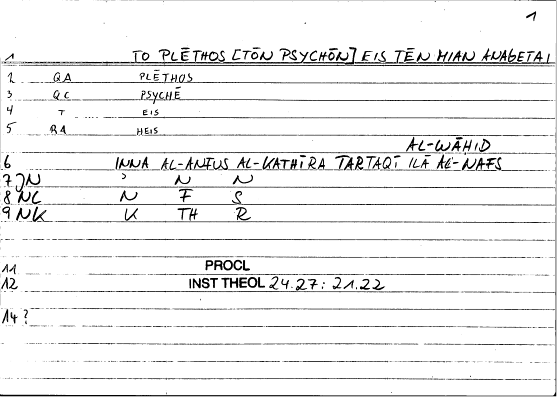 1
1 TO PLĒTHOS [TŌN PSYCHŌN] EIS TĒN MIAN ANAGETAI
2 QA PLĒTHOS
3 QC PSYCHĒ
4 T EIS
5 RA HEIS
AL-WĀHID
6 INNA AL-ANFUS AL-KATHĪRA TARTAQĪ ILĀ AL-NAFS
7 JN ʾ N N
8 NC N F S
9 NK K TH R
11 PROCL
12 INST THEOL 24.27: 21.22
14 ?